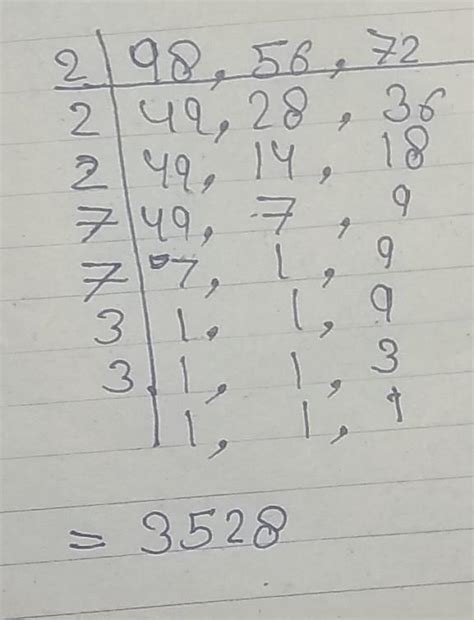 2 | 98, 56, 72
2 | 49, 28, 36
2 | 49, 14, 18
7 | 49, 7, 9
7 | 7, 1, 9
3 | 1, 1, 9
3 | 1, 1, 3
| 1, 1, 1
= 3528